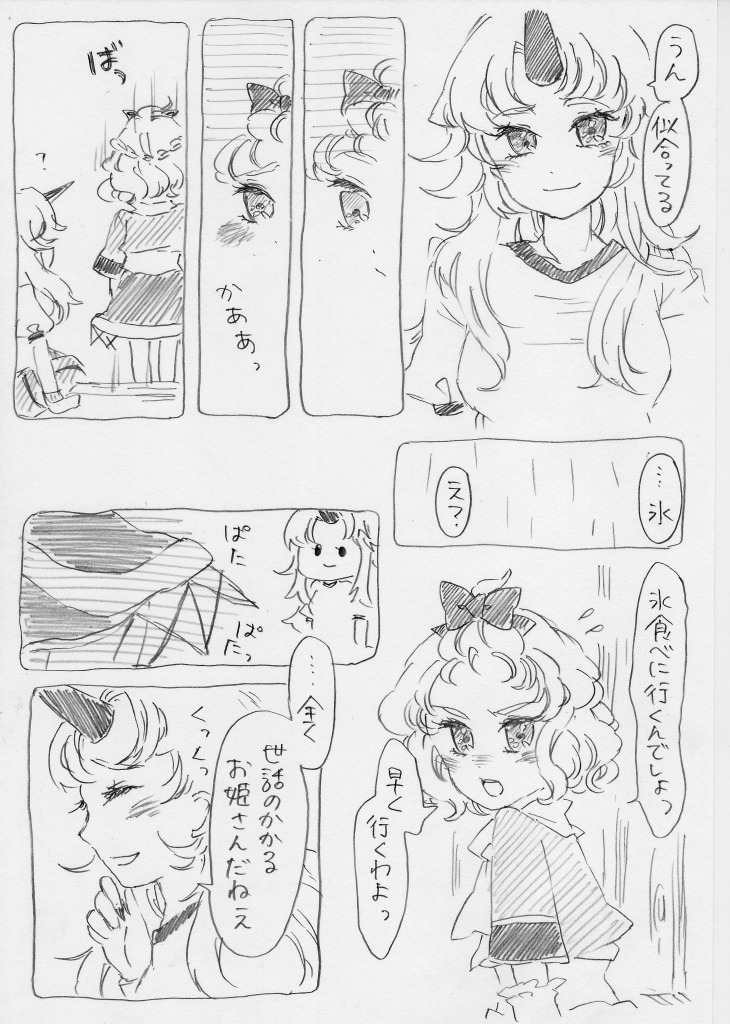 うん
似合ってる
かああっ
ばっ
?
…氷
えっ?
氷食べに行くんでしょっ
早く行くわよっ
ぱた
ぱたっ
……全く
世話のかかる
お姫さんだねえ
くっくっ